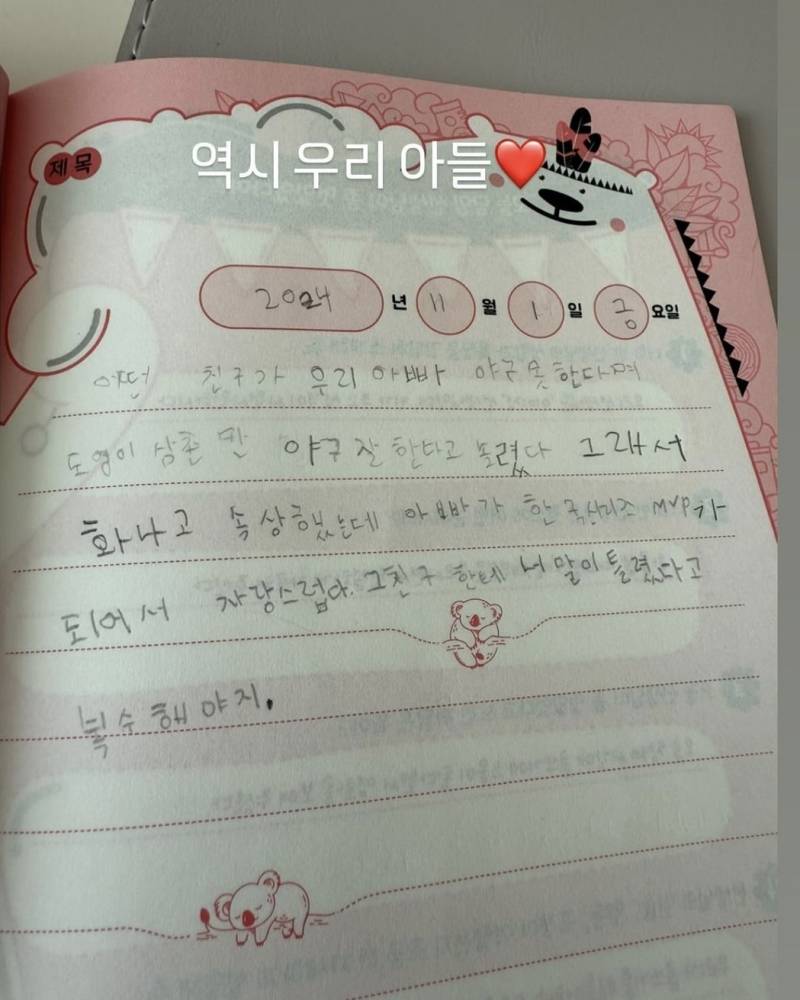 역시 우리 아들❤️
제목
2024 년 11 월 1 일 금 요일
어떤 친구가 우리 아빠 야구 못 한다며
도영이 삼촌 만 야구 잘 한다고 놀렸다 그래서
화나고 속상했는데 아빠가 한국시리즈 MVP가
되어서 자랑스럽다. 그친구 한테 너 말이 틀렸다고
복수해야지.